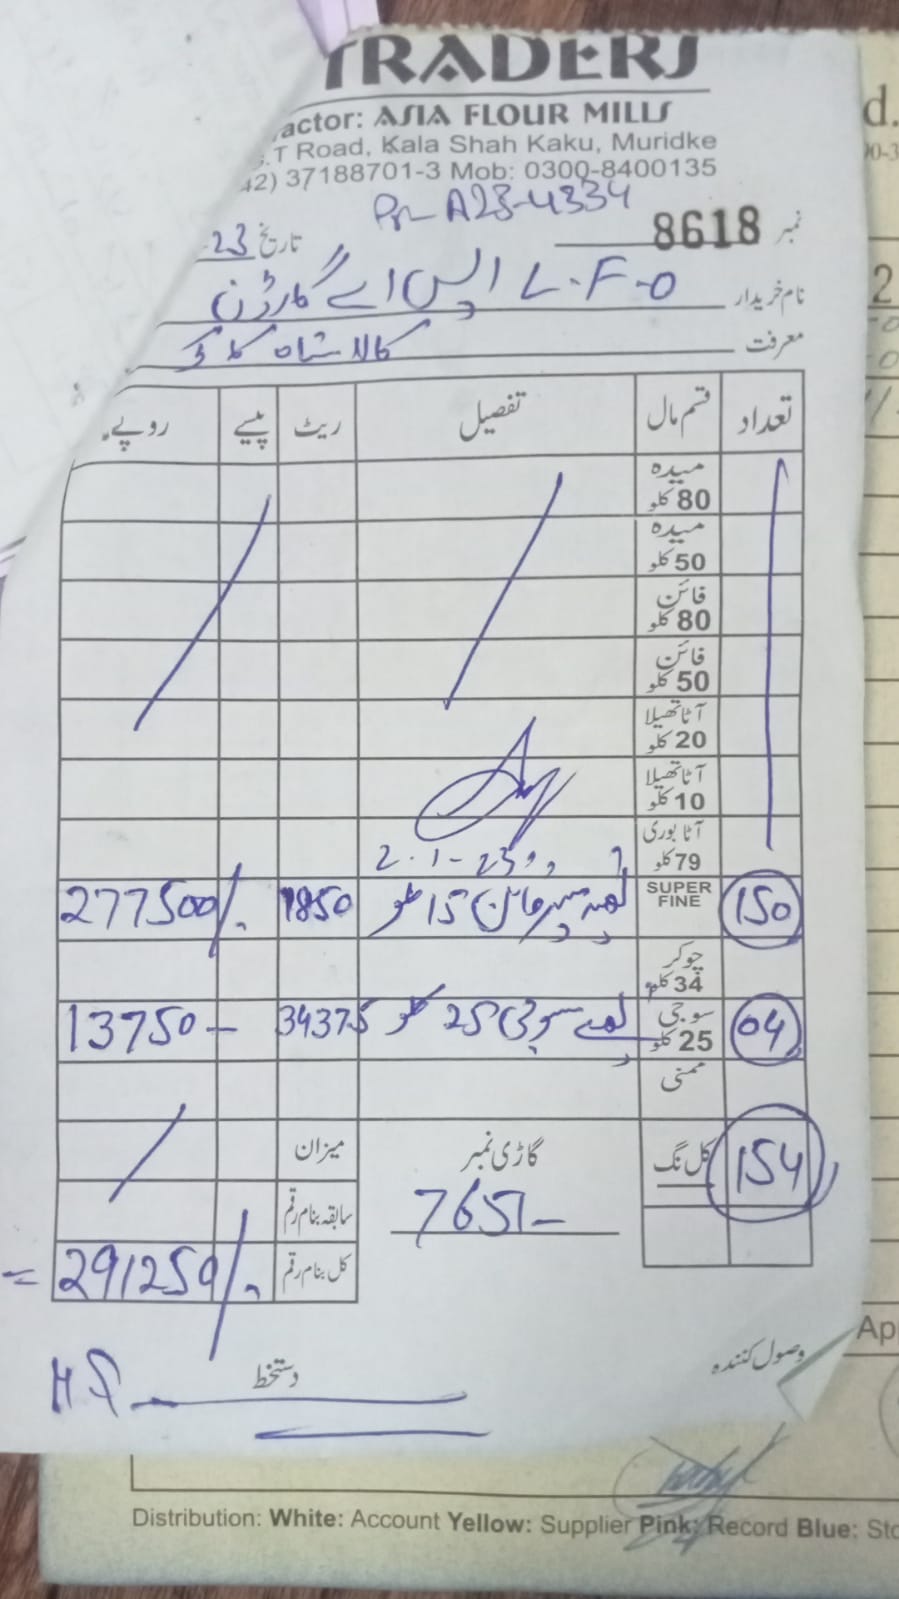 TRADERS
actor: ASIA FLOUR MILLS
.T Road, Kala Shah Kaku, Muridke
42) 37188701-3 Mob: 0300-8400135
A23-4334
نمبر 8618 تاریخ 23
نام خریدار L.F.O ایس اے گارڈن
معرفت کالا شاہ کاکو
تعداد قسم مال تفصیل ریٹ پیسے روپے
میدہ 80 کلو
میدہ 50 کلو
فائن 80 کلو
فائن 50 کلو
آٹا تھیلا 20 کلو
آٹا تھیلا 10 کلو
آٹا بوری 79 کلو
2-1-23
150 SUPER FINE سپر فائن 15 کلو 1850 277500/-
چوکر 34 کلو
04 سوجی 25 کلو سوجی 25 کلو 3437.5 13750-
ممنی
154 کل نگ گاڑی نمبر میزان
7651- سابقہ بنام رقم
کل بنام رقم 291250/- =
وصول کنندہ دستخط
App
Distribution: White: Account Yellow: Supplier Pink: Record Blue: Sto